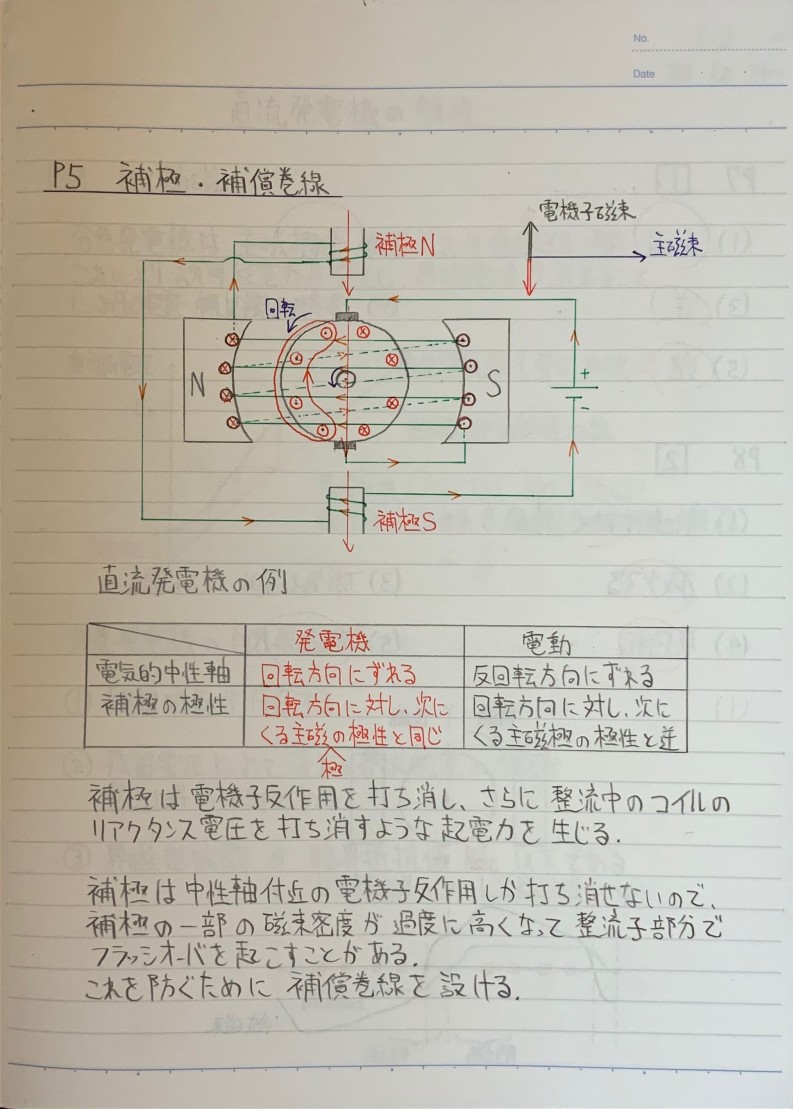 No.
Date
P5 補極・補償巻線
電機子磁束
補極N
主磁束
回転
N
S
+
-
補極S
直流発電機の例
発電機
電動
電気的中性軸
回転方向にずれる
反回転方向にずれる
補極の極性
回転方向に対し、次に
くる主磁の極性と同じ
極
回転方向に対し、次に
くる主磁極の極性と逆
補極は電機子反作用を打ち消し、さらに整流中のコイルの
リアクタンス電圧を打ち消すような起電力を生じる.
補極は中性軸付近の電機子反作用しか打ち消せないので、
補極の一部の磁束密度が過度に高くなって整流子部分で
フラッシオーバを起こすことがある.
これを防ぐために補償巻線を設ける.